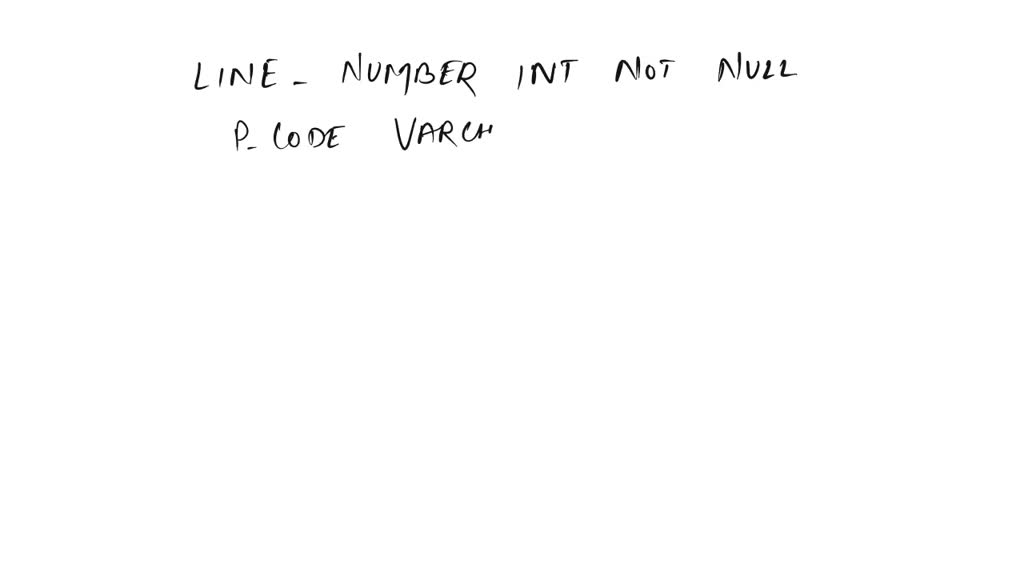 LINE_ NUMBER INT NOT NULL
P_CODE VARCH